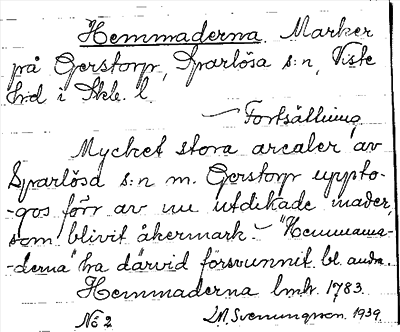 Hemmaderna. Marker
på Gerstorp, Sparlösa s:n, Viste
hrd i Skbl. l.
— Fortsättning
Mycket stora arealer av
Sparlösa s:n m. Gerstorp uppto-
-gos förr av nu utdikade mader,
som blivit åkermark. – "Hemmama-
-derna" ha därvid försvunnit bl. andra.
Hemmaderna lmk. 1783.
No 2 LM. Svenungsson. 1939.